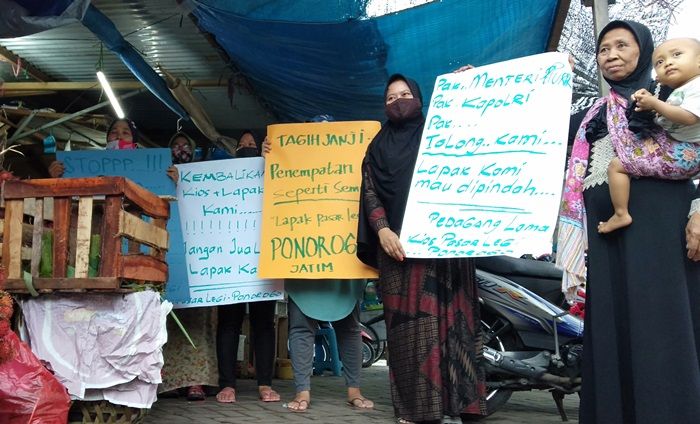 STOPPP...!!!
KEMBALIKAN
Kios + Lapak
Kami......
!!!!!!!!!
Jangan Jual
Lapak Ka
Pasar LEGI-PONOROGO
TAGIH JANJI...
Penempatan
Seperti Sem
"Lapak Pasar LEG
PONOROGO
JATIM
Pak.. MENTERI
Pak Kapolri
Pak....
Tolong.. Kami...
Lapak Kami
mau dipindah....
Pedagang Lama
Kios Pasar LEGI
PONOROGO